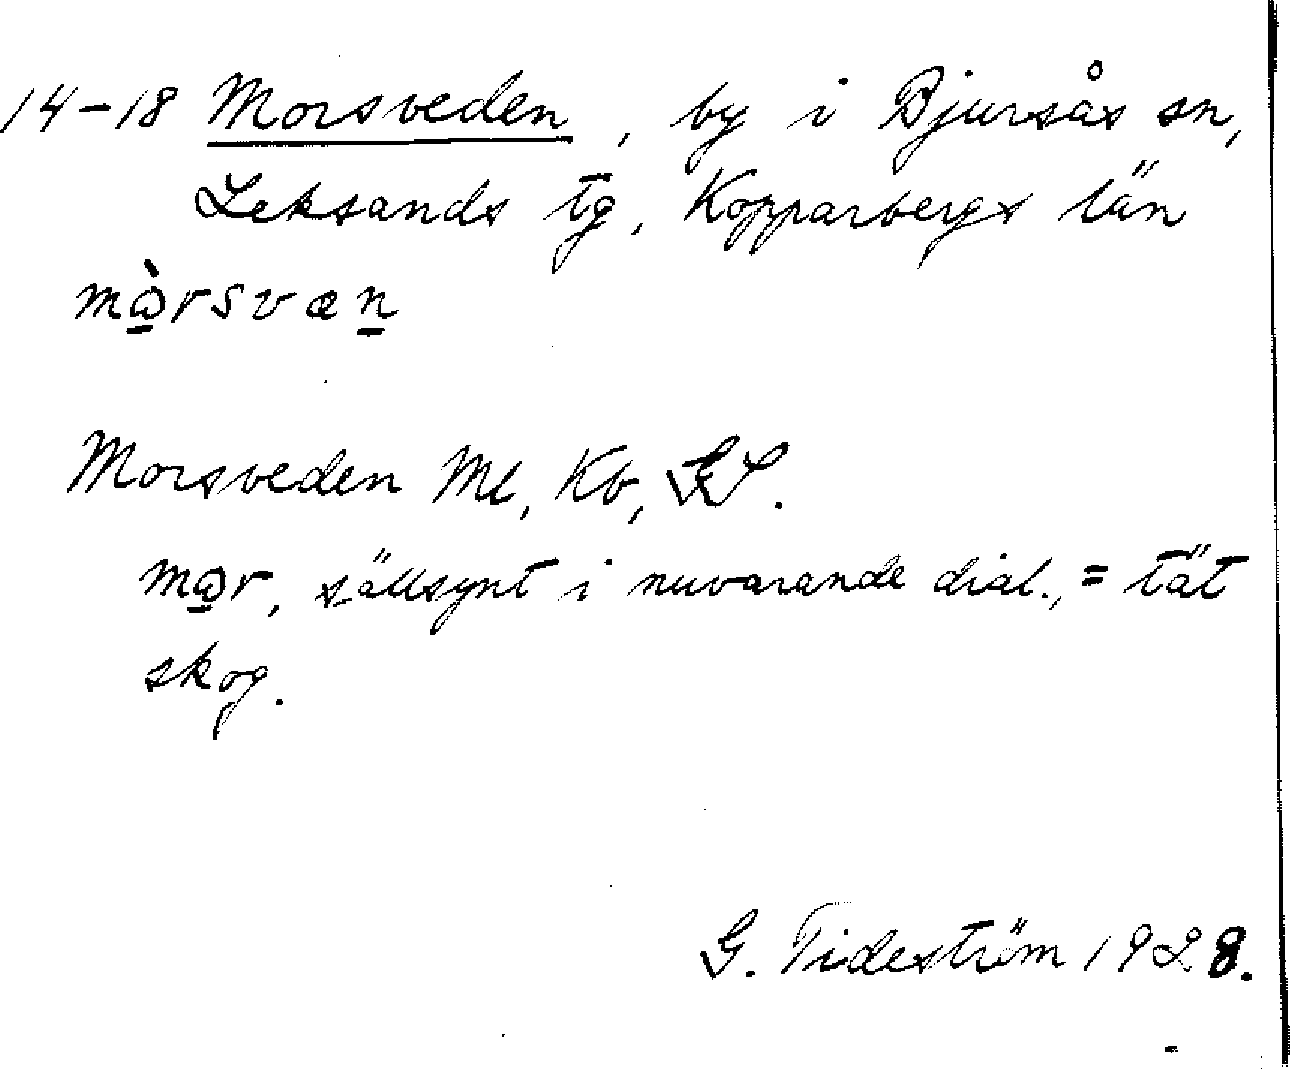 14-18 Morsveden, by i Bjursås sn,
Leksands tg, Kopparbergs län
mòrsvæn
Morsveden Ml, Kb, GS.
mor, sällsynt i nuvarande dial., = tät
skog.
G. Tideström 1928.